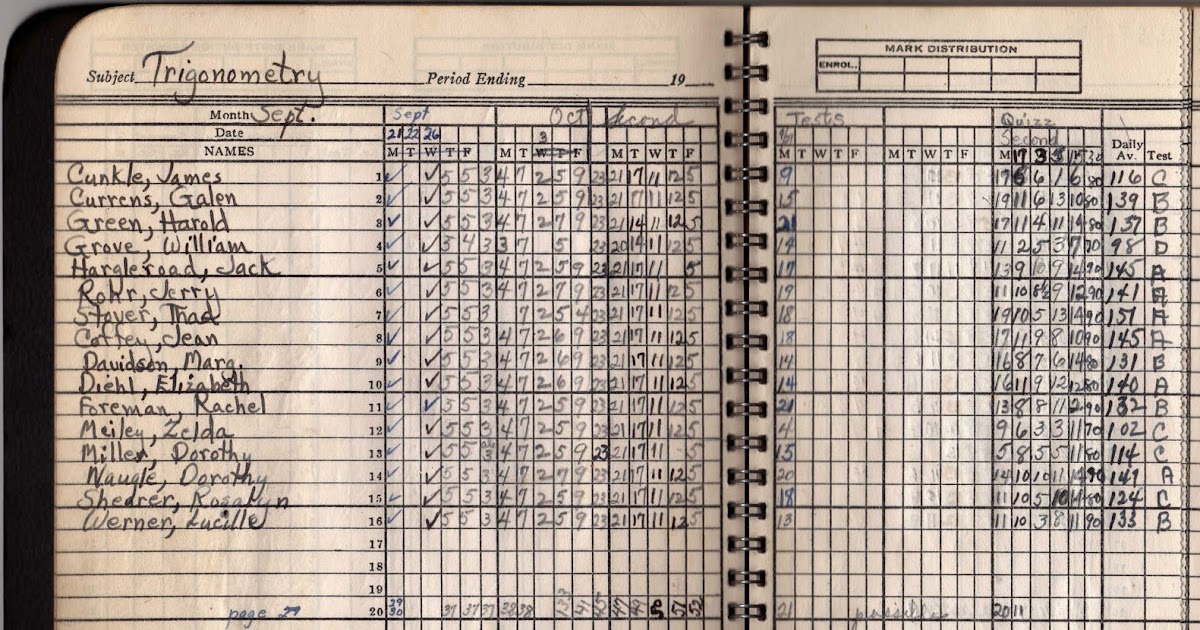 MARK DISTRIBUTION
ENROL.
Subject Trigonometry Period Ending 19
Month Sept. Sept Oct Second Tests Quizz
Date 21 22 26 3 Second
NAMES M T W T F M T W T F M T W T F M T W T F M T W T F M 17 3 Daily Av. Test
Cunkle, James 1 ✓ ✓ 5 5 3 4 7 2 5 9 23 21 17 11 12 5 9 17 6 6 1 6 80 116 C
Currens, Galen 2 ✓ ✓ 5 5 3 4 7 2 5 9 23 21 17 11 12 5 15 19 11 6 13 10 80 139 B
Green, Harold 3 ✓ ✓ 5 5 3 4 7 2 7 9 23 21 14 11 12 5 21 17 11 4 11 14 80 137 B
Grove, William 4 ✓ ✓ 5 4 3 3 7 5 23 20 14 11 12 5 14 11 2 5 3 7 70 98 D
Hargleroad, Jack 5 ✓ ✓ 5 5 3 4 7 2 5 9 23 21 17 11 5 17 13 9 10 9 14 90 145 A
Rohr, Jerry 6 ✓ ✓ 5 5 3 4 7 2 7 9 23 21 17 11 12 5 19 11 10 8½ 9 12 90 141 A
Stover, Thad 7 ✓ ✓ 5 5 3 7 2 5 4 23 21 17 11 12 5 18 19 10 5 13 14 90 151 A
Coffey, Jean 8 ✓ ✓ 5 5 3 4 7 2 6 9 23 21 17 11 12 5 18 17 11 9 8 10 90 145 A
Davidson, Marg. 9 ✓ ✓ 5 5 3 4 7 2 6 9 23 21 17 11 12 5 14 16 8 7 6 14 80 131 B
Diehl, Elizabeth 10 ✓ ✓ 5 5 3 4 7 2 6 9 23 21 17 11 12 5 14 16 11 9 12 12 80 140 A
Foreman, Rachel 11 ✓ ✓ 5 5 3 4 7 2 5 9 23 21 17 11 12 5 21 13 8 8 11 2 90 132 B
Meiley, Zelda 12 ✓ ✓ 5 5 3 4 7 2 5 9 23 21 17 11 12 5 4 9 6 3 3 11 70 102 C
Miller, Dorothy 13 ✓ ✓ 5 5 4 7 2 5 9 23 21 17 11 5 15 5 8 5 5 11 80 114 C
Naugle, Dorothy 14 ✓ ✓ 5 5 3 4 7 2 7 9 23 21 17 11 12 5 20 14 10 10 11 14 90 147 A
Shearer, Rosalyn 15 ✓ ✓ 5 5 3 4 7 2 5 9 23 21 17 11 12 5 18 11 10 5 10 14 80 124 C
Werner, Lucille 16 ✓ ✓ 5 5 3 4 7 2 5 9 23 21 17 11 12 5 13 11 10 3 8 11 90 133 B
17
18
19
page 29 20 29 30 37 37 37 38 38 21 possible 20 11